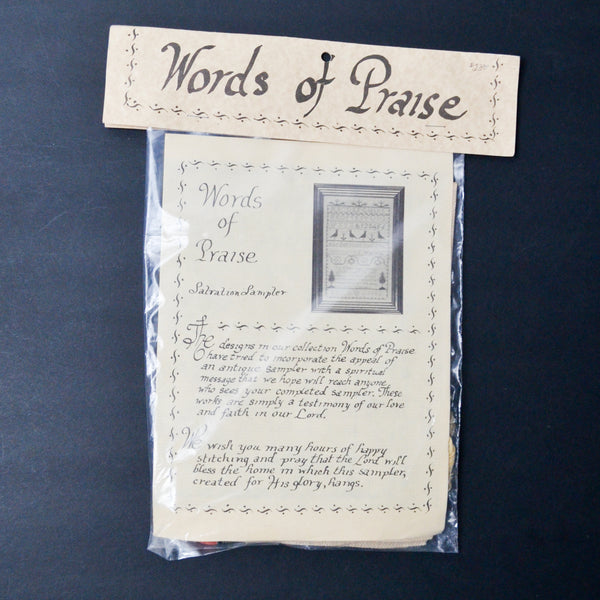 Words of Praise
Words
of
Praise
Salvation Sampler
The designs in our collection Words of Praise
have tried to incorporate the appeal of
an antique sampler with a spiritual
message that we hope will reach anyone
who sees your completed sampler. These
works are simply a testimony of our love
and faith in our Lord.
We wish you many hours of happy
stitching and pray that the Lord will
bless the home in which this sampler,
created for His glory, hangs.